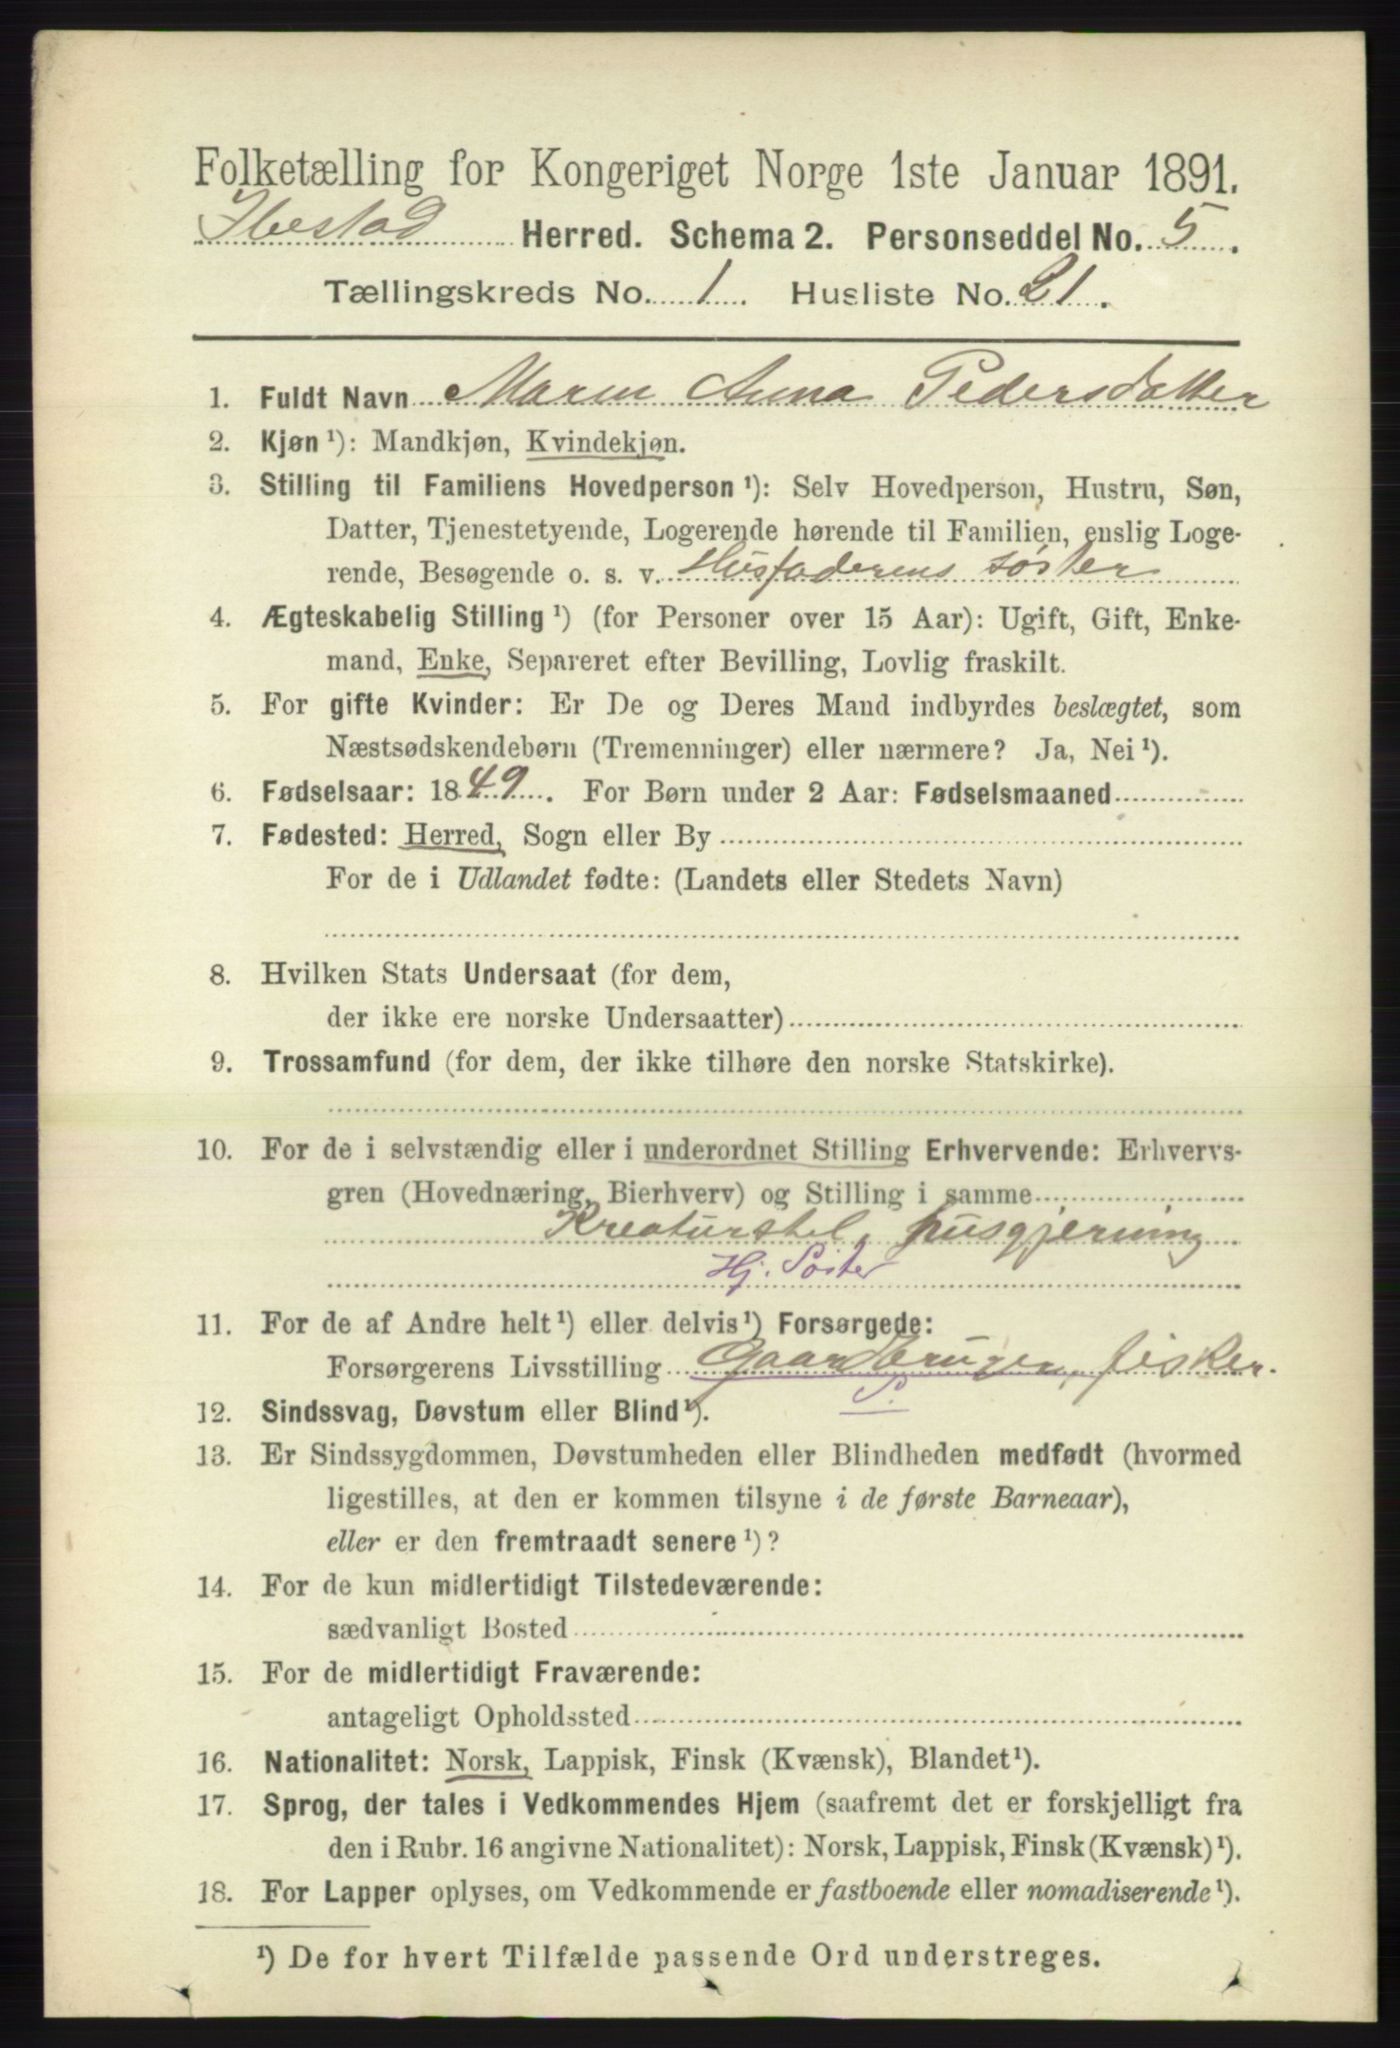 Folketælling for Kongeriget Norge 1ste Januar 1891.
Ibestad Herred. Schema 2. Personseddel No. 5.
Tællingskreds No. 1. Husliste No. 21.
1. Fuldt Navn Maren Anna Pedersdatter
2. Kjøn ¹): Mandkjøn, Kvindekjøn.
3. Stilling til Familiens Hovedperson ¹): Selv Hovedperson, Hustru, Søn,
Datter, Tjenestetyende, Logerende hørende til Familien, enslig Loge-
rende, Besøgende o. s. v. Husfaderens søster
4. Ægteskabelig Stilling ¹) (for Personer over 15 Aar): Ugift, Gift, Enke-
mand, Enke, Separeret efter Bevilling, Lovlig fraskilt.
5. For gifte Kvinder: Er De og Deres Mand indbyrdes beslægtet, som
Næstsødskendebørn (Tremenninger) eller nærmere? Ja, Nei ¹).
6. Fødselsaar: 1849. For Børn under 2 Aar: Fødselsmaaned
7. Fødested: Herred, Sogn eller By
For de i Udlandet fødte: (Landets eller Stedets Navn)
8. Hvilken Stats Undersaat (for dem,
der ikke ere norske Undersaatter)
9. Trossamfund (for dem, der ikke tilhøre den norske Statskirke).
10. For de i selvstændig eller i underordnet Stilling Erhvervende: Erhvervs-
gren (Hovednæring, Bierhverv) og Stilling i samme
Kreaturstel, husgjerning
Hj. Søster
11. For de af Andre helt ¹) eller delvis ¹) Forsørgede:
Forsørgerens Livsstilling Gaardbruger, fisker.
S.
12. Sindssvag, Døvstum eller Blind ¹).
13. Er Sindssygdommen, Døvstumheden eller Blindheden medfødt (hvormed
ligestilles, at den er kommen tilsyne i de første Barneaar),
eller er den fremtraadt senere ¹)?
14. For de kun midlertidigt Tilstedeværende:
sædvanligt Bosted
15. For de midlertidigt Fraværende:
antageligt Opholdssted
16. Nationalitet: Norsk, Lappisk, Finsk (Kvænsk), Blandet ¹).
17. Sprog, der tales i Vedkommendes Hjem (saafremt det er forskjelligt fra
den i Rubr. 16 angivne Nationalitet): Norsk, Lappisk, Finsk (Kvænsk) ¹).
18. For Lapper oplyses, om Vedkommende er fastboende eller nomadiserende ¹).
¹) De for hvert Tilfælde passende Ord understreges.